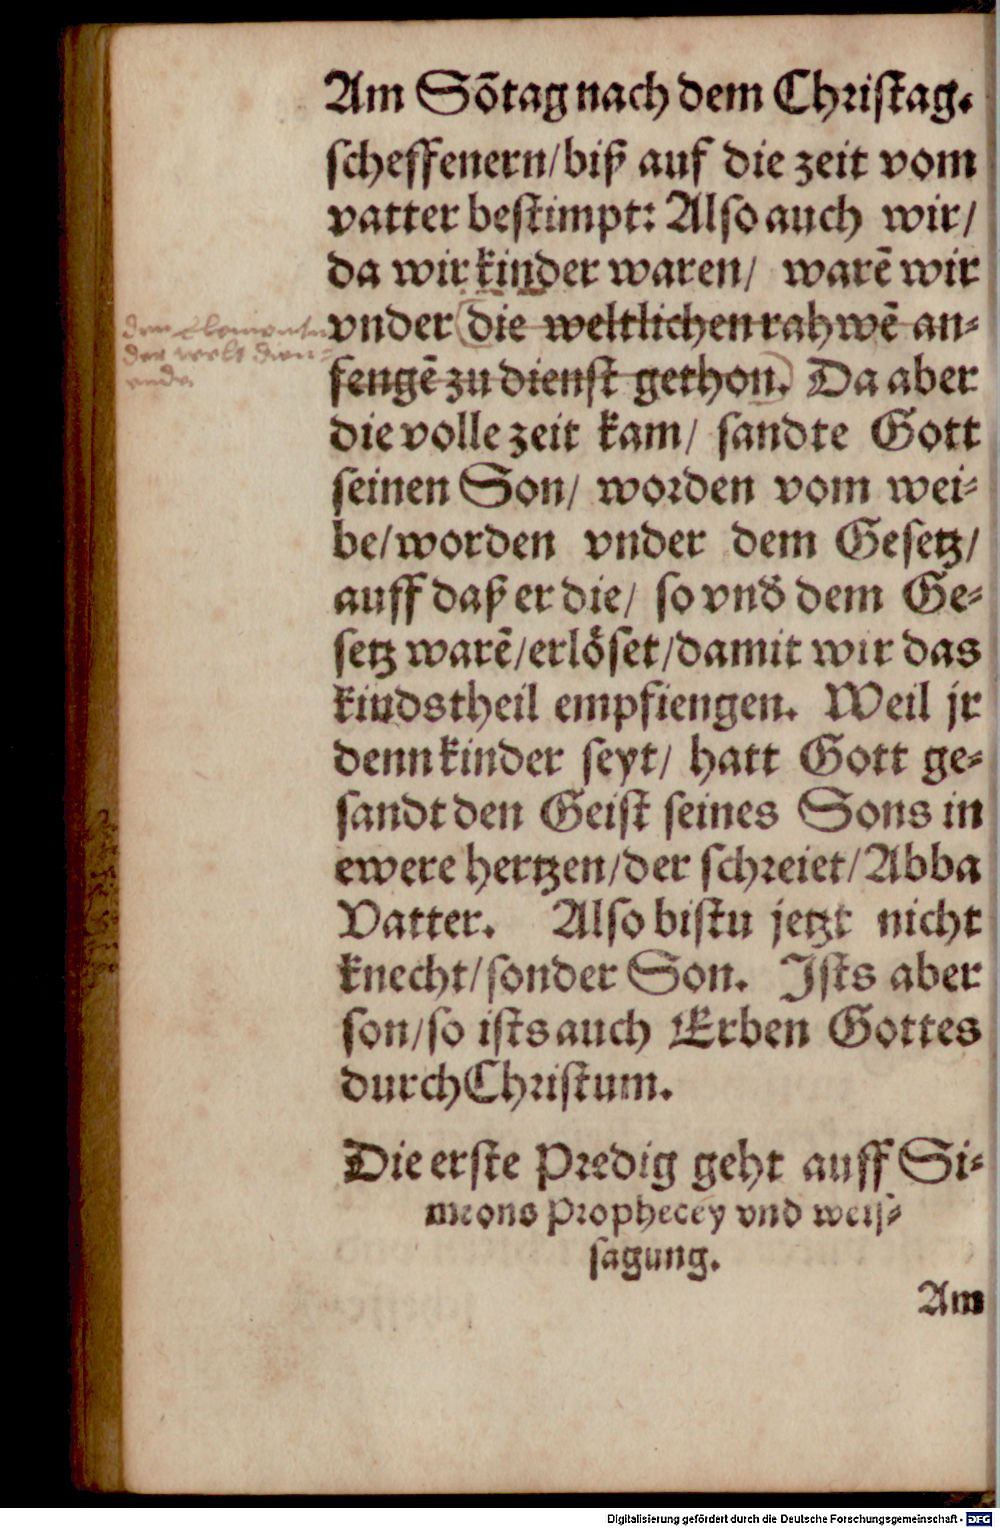 Am Sõtag nach dem Christag.
scheffenern/biß auf die zeit vom
vatter bestimpt: Also auch wir/
da wir kinder waren/ warẽ wir
den Elementen
der welt dien-
ende
vnder (die weltlichen rahwẽ an-
fengẽ zu dienst gethon.) Da aber
die volle zeit kam/ sandte Gott
seinen Son/ worden vom wei-
be/worden vnder dem Gesetz/
auff daß er die/ so vnd̃ dem Ge-
setz warẽ/erlöset/damit wir das
kindstheil empfiengen. Weil jr
denn kinder seyt/ hatt Gott ge-
sandt den Geist seines Sons in
ewere hertzen/der schreiet/Abba
Vatter. Also bistu jetzt nicht
knecht/sonder Son. Ists aber
son/so ists auch Erben Gottes
durch Christum.
Die erste Predig geht auff Si-
meons Prophecey vnd weis-
sagung.
Am
Digitalisierung gefördert durch die Deutsche Forschungsgemeinschaft - DFG